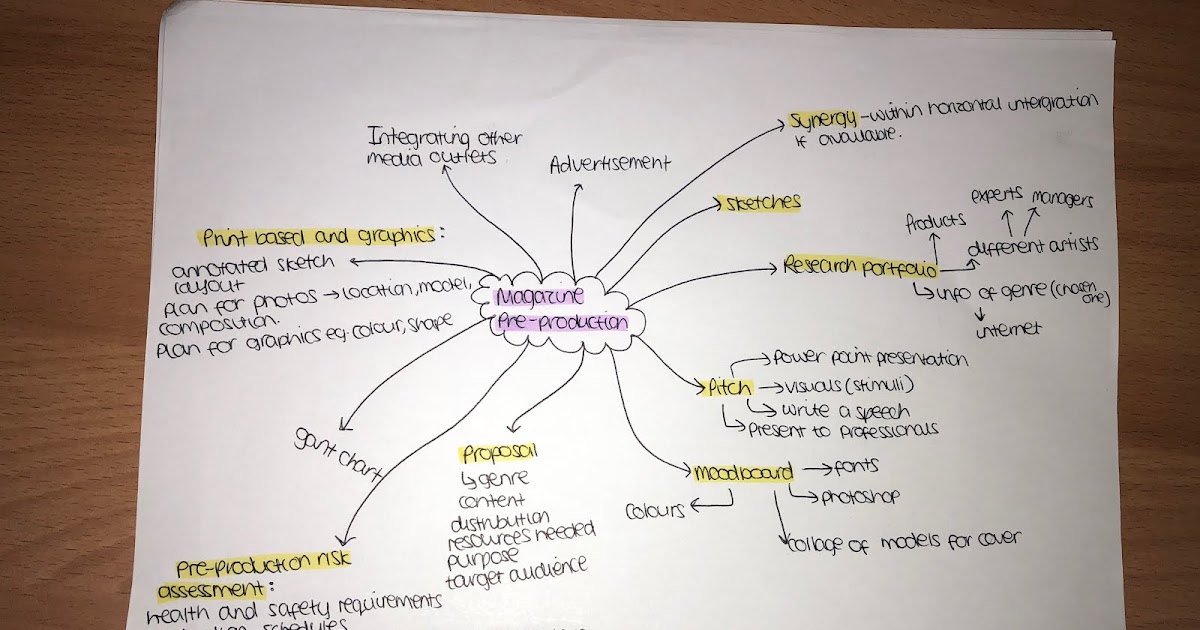 Integrating other
media outlets
Advertisement
Synergy - within horizontal intergration
if available.
sketches
Print based and graphics:
annotated sketch
layout
Plan for photos → location, model,
composition.
Plan for graphics eg. colour, shape
Magazine
Pre-production
Research portfolio
Products
experts managers
different artists
info of genre (chosen
one)
internet
Pitch
Power point presentation
visuals (stimuli)
write a speech
Present to Professionals
Moodboard
fonts
photoshop
colours
collage of models for cover
gant chart
Proposal
genre
content
distribution
resources needed
purpose
target audience
Pre-production risk
assessment:
health and safety requirements
schedules